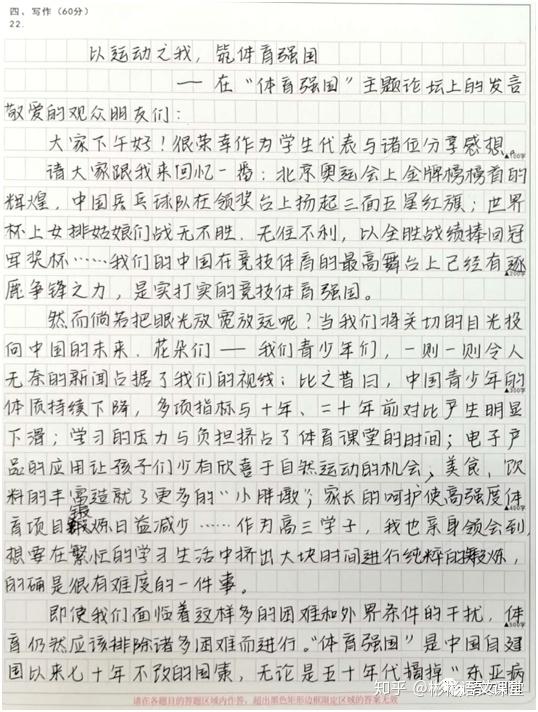 四、写作（60分）
22.
以运动之我，筑体育强国
——在“体育强国”主题论坛上的发言
敬爱的观众朋友们：
大家下午好！很荣幸作为学生代表与诸位分享感想。
▲100字
请大家跟我来回忆一番：北京奥运会上金牌榜榜首的
辉煌，中国乒乓球队在领奖台上扬起三面五星红旗；世界
杯上女排姑娘们战无不胜、无往不利，以全胜战绩捧回冠
军奖杯……我们的中国在竞技体育的最高舞台上已经有逐
▲200字
鹿争锋之力，是实打实的竞技体育强国。
然而倘若把眼光放宽放远呢？当我们将关切的目光投
向中国的未来、花朵们——我们青少年们，一则一则令人
无奈的新闻占据了我们的视线：比之昔日，中国青少年的
▲300字
体质持续下降，多项指标与十年、二十年前对比产生明显
下滑；学习的压力与负担挤占了体育课堂的时间；电子产
品的应用让孩子们少有欣喜于自然运动的机会，美食、饮
料的丰富造就了更多的“小胖墩”；家长的呵护使高强度体
▲400字
育项目锻炼日益减少……作为高三学子，我也亲身领会到，
想要在繁忙的学习生活中挤出大块时间进行纯粹的锻炼，
的确是很有难度的一件事。
即使我们面临着这样多的困难和外界条件的干扰，体
▲500字
育仍然应该排除诸多困难而进行。“体育强国”是中国自建
国以来七十年不改的国策，无论是五十年代摘掉“东亚病
知乎
请在各题目的答题区域内作答，超出黑色矩形边框限定区域的答案无效